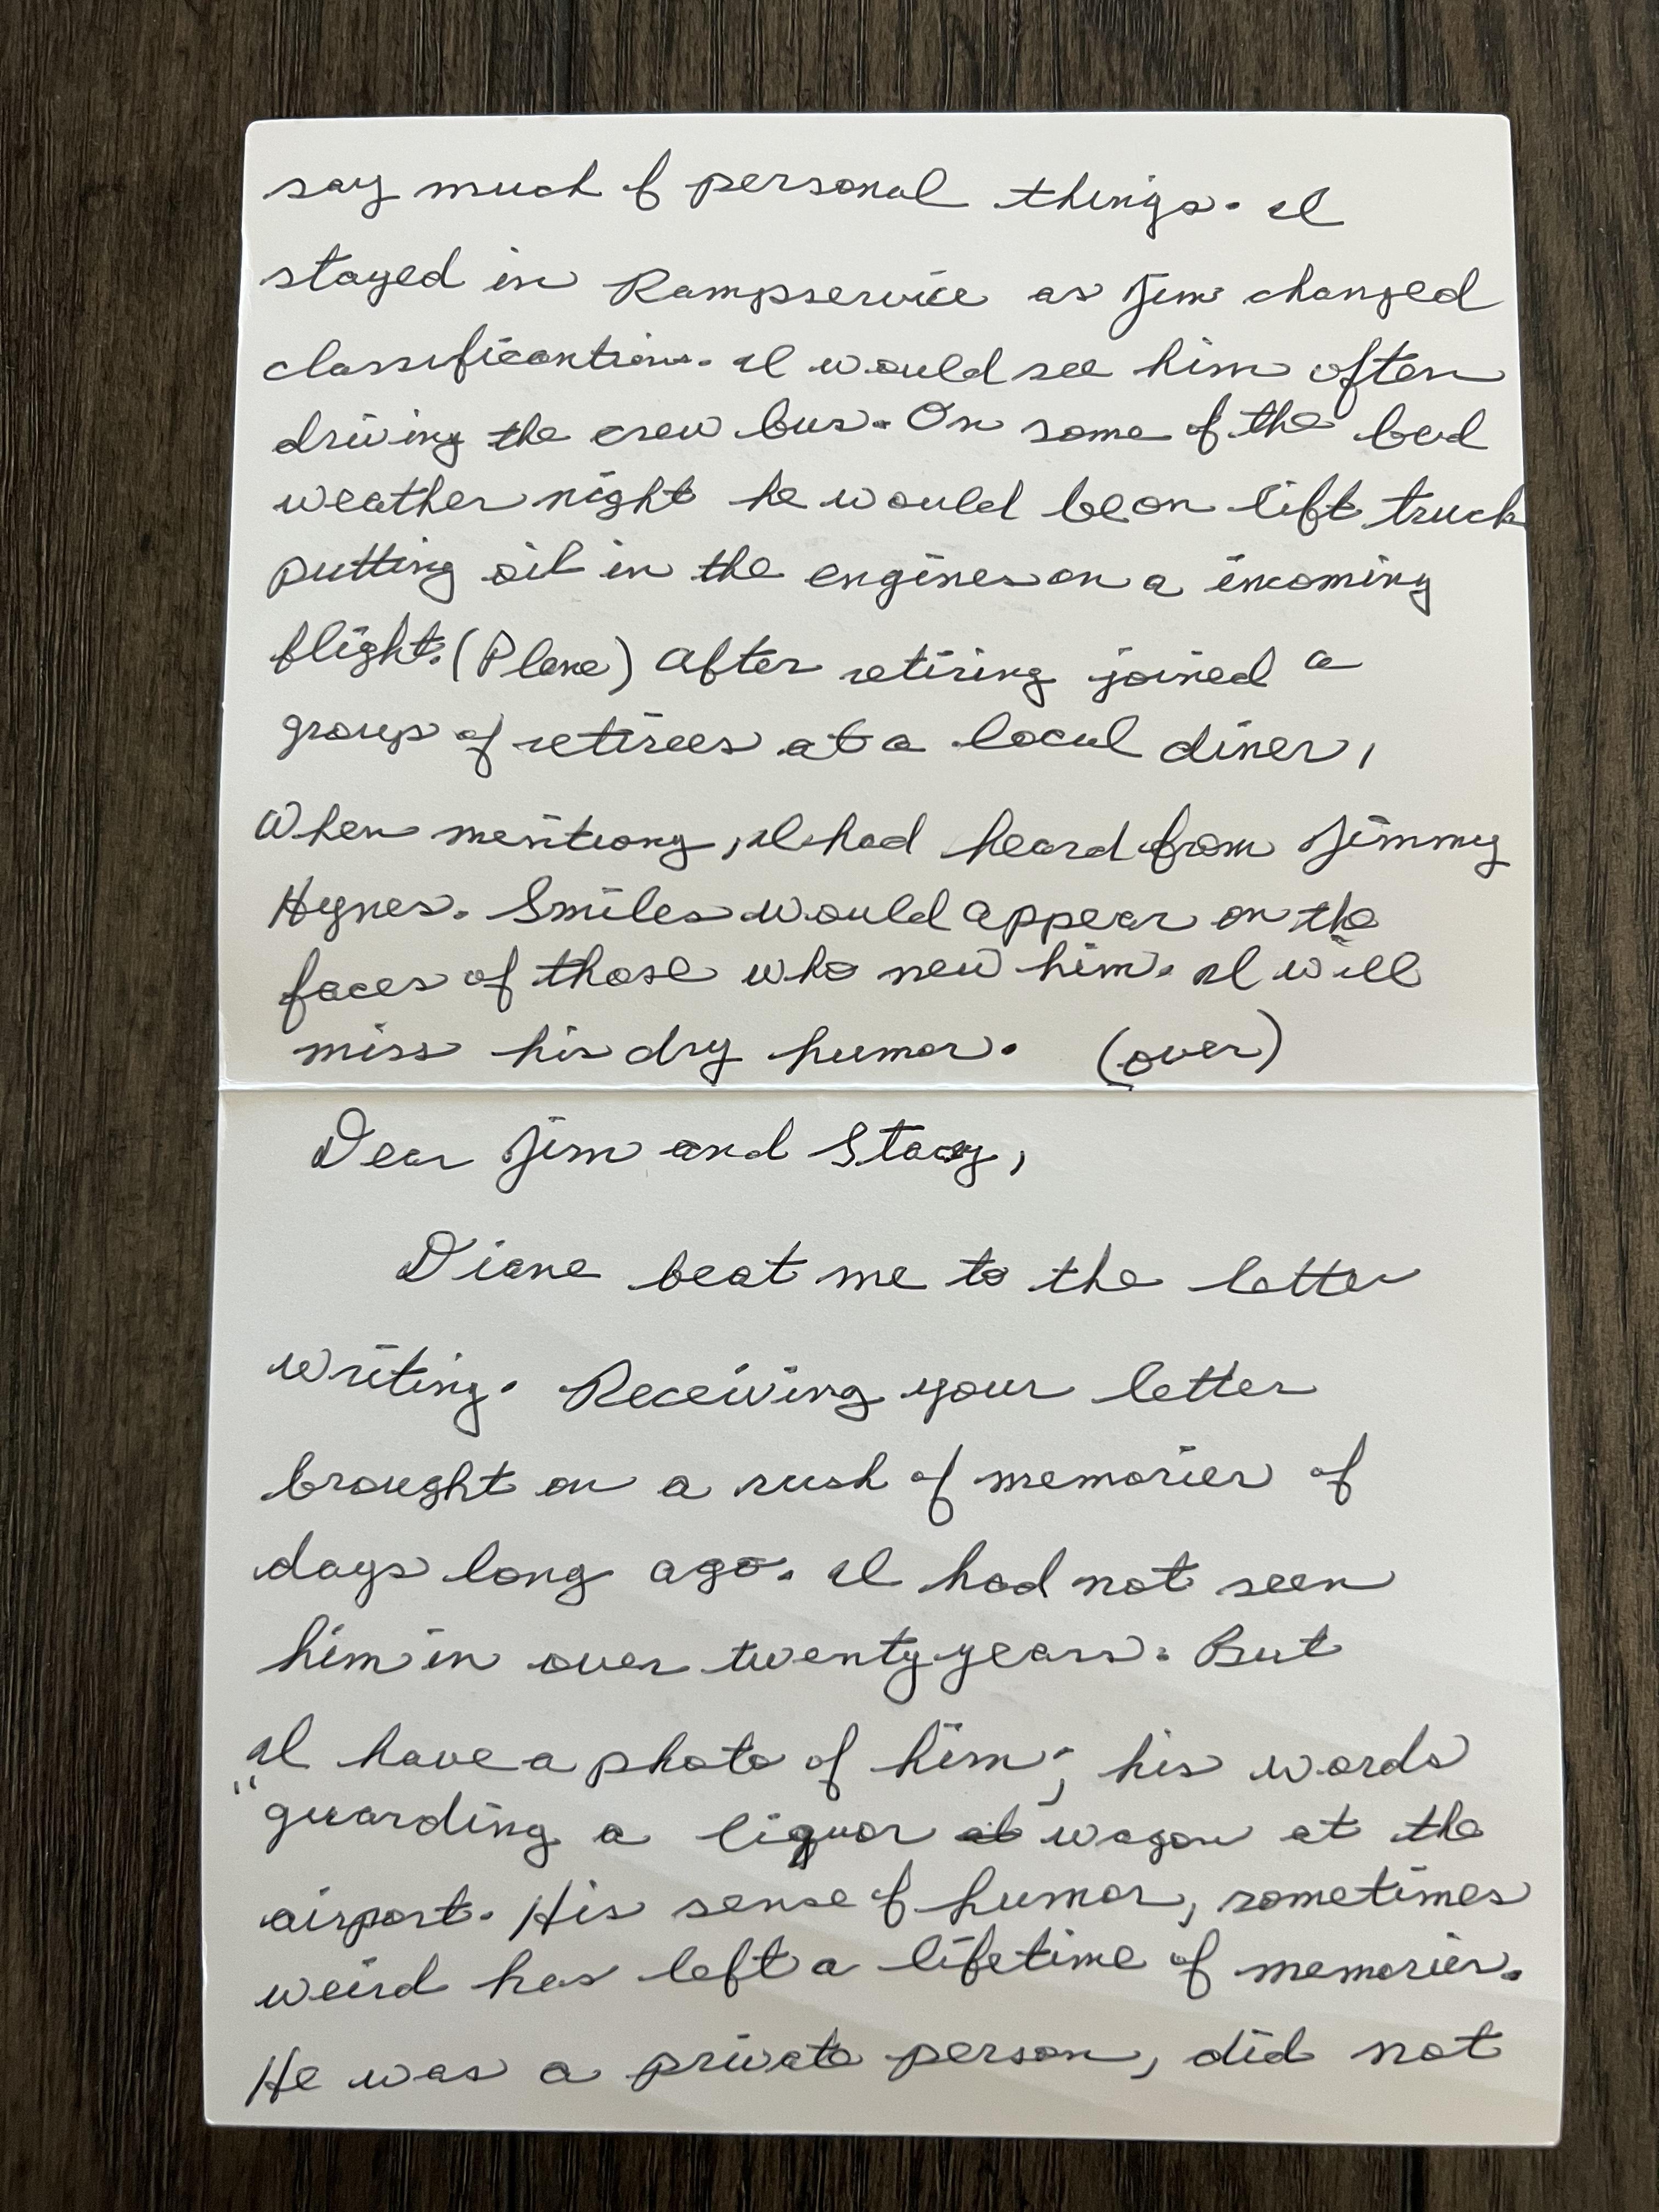 say much of personal things. I
stayed in Rampservice as Jim changed
classificantions. I would see him often
driving the crew bus. On some of the bad
weather night he would be on lift truck
putting oil in the engines on a incoming
flight. (Plane) After retiring joined a
group of retirees at a local diner,
When mentiong, I had heard from Jimmy
Hynes. Smiles would appear on the
faces of those who new him. I will
miss his dry humor. (over)
Dear Jim and Stacy,
Diane beat me to the letter
writing. Receiving your letter
brought on a rush of memories of
days long ago. I had not seen
him in over twenty years. But
I have a photo of him; his words
"guarding a liquor wagon at the
airport. His sense of humor, sometimes
weird has left a lifetime of memories.
He was a private person, did not